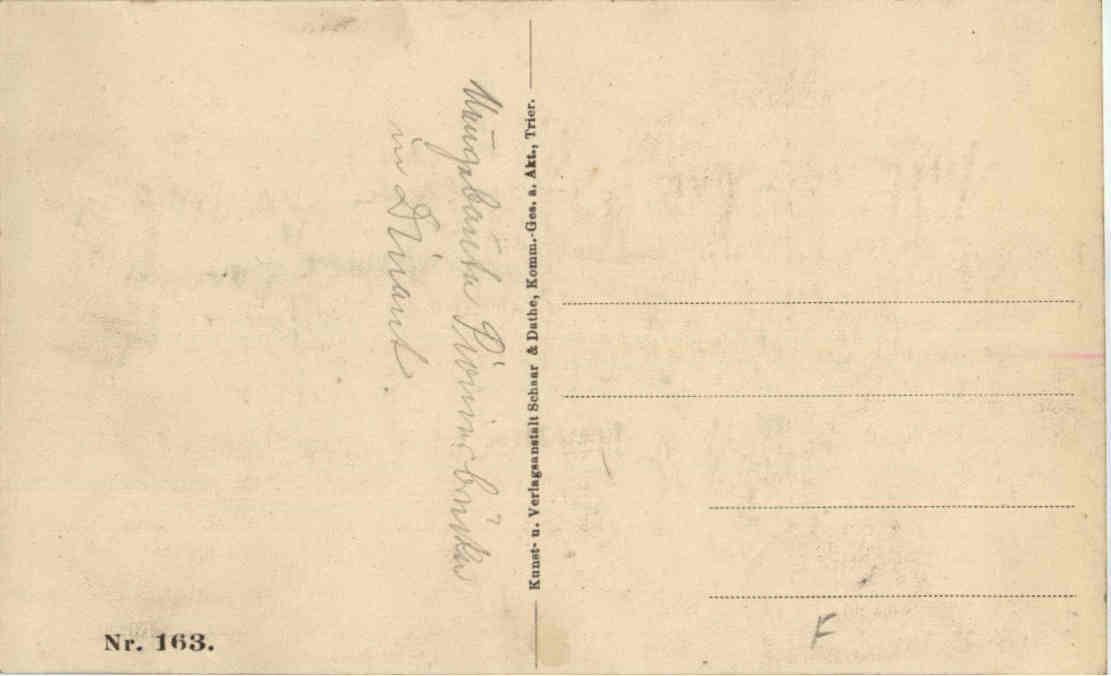 Neugebaute Pionierbrücke
in Dinant.
Kunst- u. Verlagsanstalt Schaar & Dathe, Komm.-Ges. a. Akt., Trier.
Nr. 163.
F